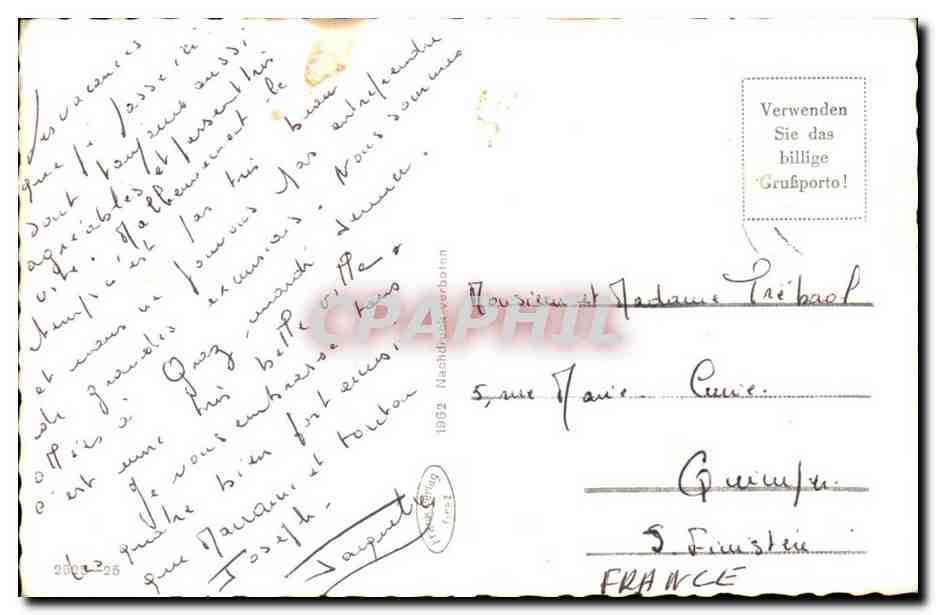 Les vacances
que je passe ici
sont toujours aussi
agréables et passent très
vite. Malheureusement le
temps n'est pas très beau
et nous ne pouvons pas entreprendre
de grandes excursions. Nous sommes
allés à Graz mardi dernier.
c'est une très belle ville.
Je vous embrasse tous
les quatre bien fort ainsi
que Marraine et tonton
Joseph.
Jacquette
Verwenden
Sie das
billige
Grußporto!
Monsieur et Madame Trébaol
5, rue Marie Curie.
Quimper
S. Finistère
FRANCE
1962 Nachdruck verboten
CPAPHIL